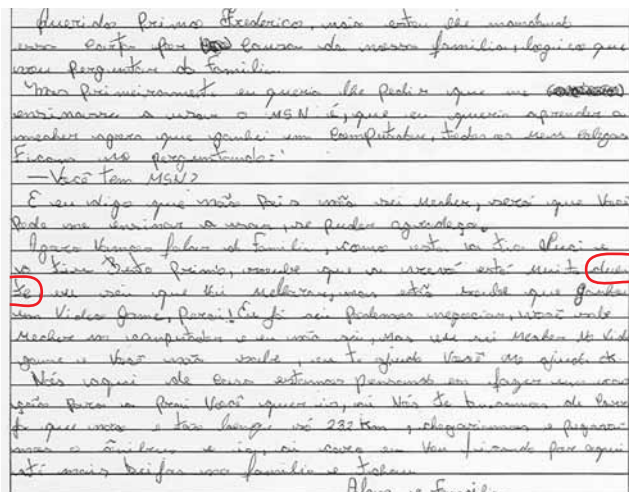 Querido Primo Frederico, não estou lhe mandando
essa carta por causa da nossa família, logico que
vou perguntar da família.
Mas primeiramente eu queria lhe pedir que me
ensinasse a usar o MSN é, que eu queria aprender a
mecher agora que ganhei um computador, todos os meus colegas
Ficam me perguntando:
— Você tem MSN?
E eu digo que não Pois não sei mecher, será que Você
Pode me ensinar a usar, se puder agradeço.
Agora Vamos falar da família, como esta a tia e
o tio Beto Primo, soube que a vovó está muito duen
te eu sei que Vai melhorar, mas soube que ganhou
um Video Game, Parai! Eu já sei Podemos negociar, você sabe
mecher no computador e eu não sei, mas eu sei mecher No vide
game e Você não sabe, eu te ajudo Você me ajuda ok.
Nós aqui de casa estamos pensando em fazer uma
para a Você quer ir, ai Nós te buscamos de
já que não é tão longe só 232 km, chegarimos e
mos o ônibus e ia, ai cara eu Vou ficando por aqui
até mais beijos na família e tchau
Família